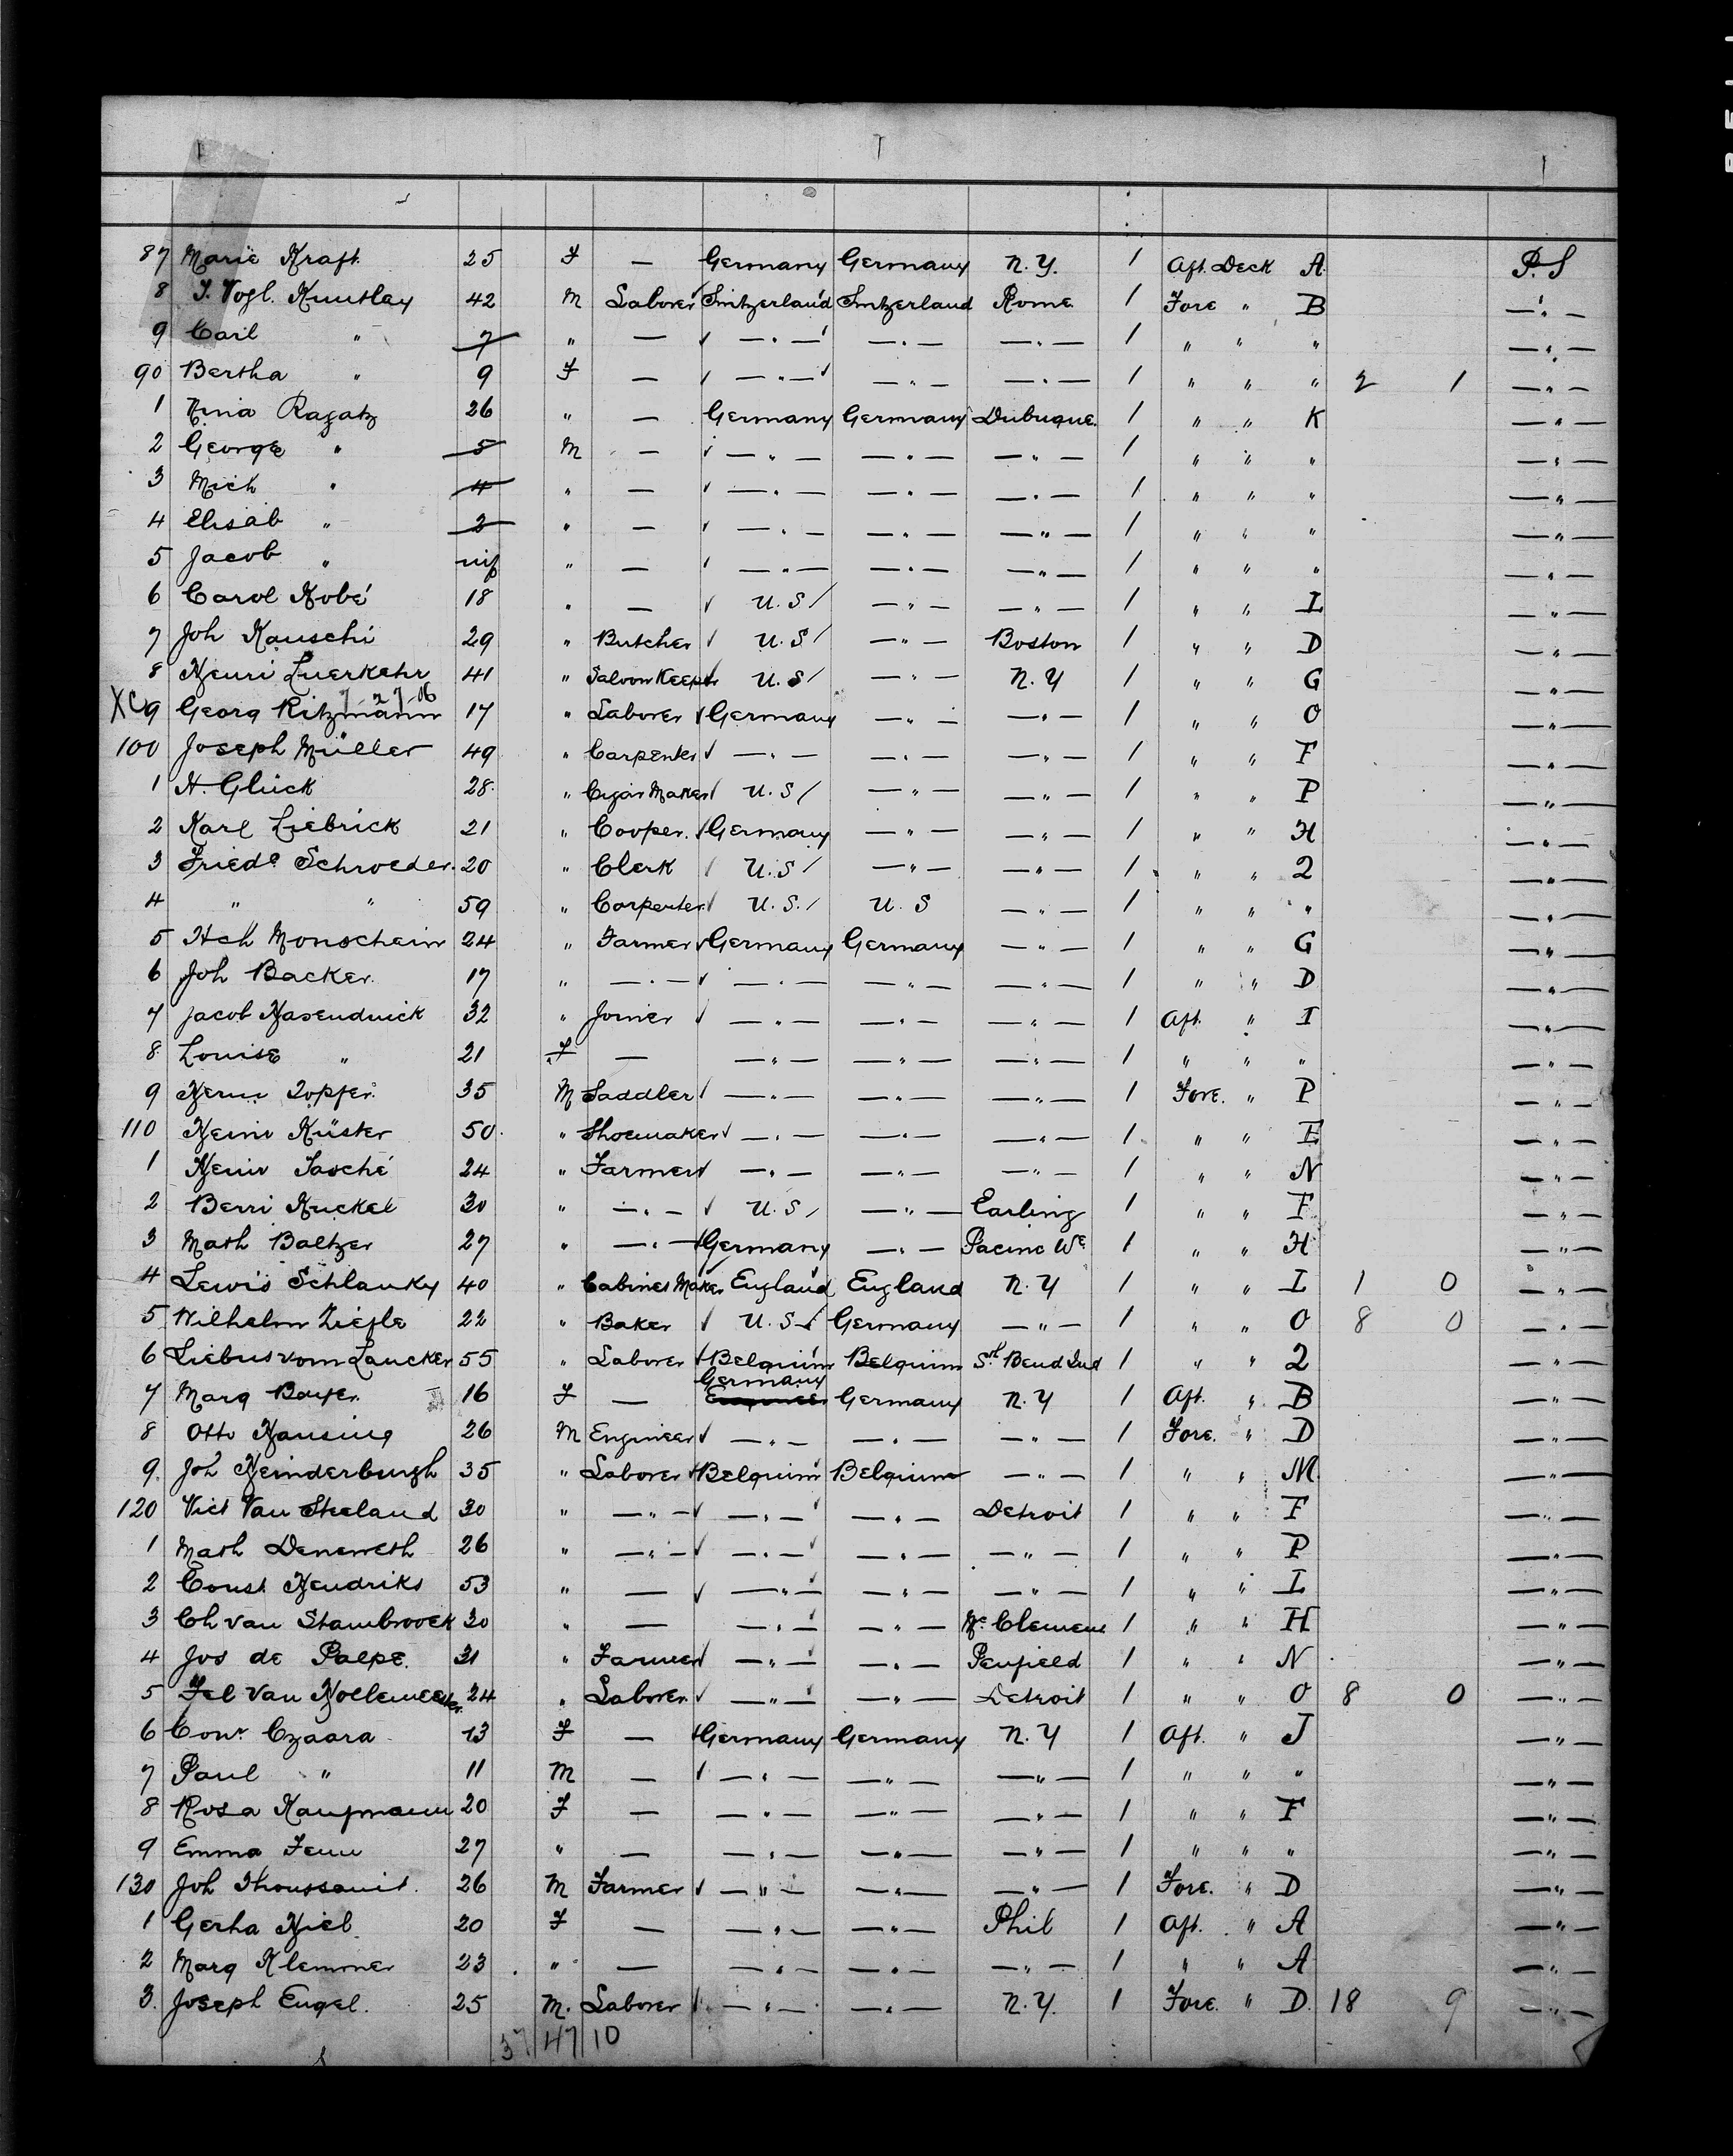 87 Marie Kraft 25 F — Germany Germany N.Y. 1 Aft. Deck A. P.S
8 J. Vogl. Kuntlay 42 M Laborer Switzerland Switzerland Rome 1 Fore " B —"—
9 Carl " 7 " — —"— —"— —"— 1 " " " —"—
90 Bertha " 9 F — —"— —"— —"— 1 " " " 2 1 —"—
1 Nina Ragatz 26 " — Germany Germany Dubuque. 1 " " K —"—
2 George " 5 M — —"— —"— —"— 1 " " " —"—
3 Mich " 4 " — —"— —"— —"— 1 " " " —"—
4 Elisab " 2 " — —"— —"— —"— 1 " " " —"—
5 Jacob " inf " — —"— —"— —"— 1 " " " —"—
6 Carol Kobé 18 " — U.S/ —"— —"— 1 " " L —"—
7 Joh Kauschi 29 " Butcher U.S/ —"— Boston 1 " " D —"—
8 Henri Luerkehr 41 " Saloon Keeper U.S/ —"— N.Y 1 " " G —"—
7 27 06
XC 9 Georg Ritzmann 17 " Laborer Germany —"— —"— 1 " " O —"—
100 Joseph Müller 49 " Carpenter —"— —"— —"— 1 " " F —"—
1 H. Glück 28. " Cigar Maker U.S/ —"— —"— 1 " " P —"—
2 Karl Liebrick 21 " Cooper. Germany —"— —"— 1 " " H —"—
3 Friedᵉ Schroeder. 20 " Clerk U.S/ —"— —"— 1 " " 2 —"—
4 " " 59 " Carpenter U.S./ U.S —"— 1 " " " —"—
5 Hch Monschein 24 " Farmer Germany Germany —"— 1 " " G —"—
6 Joh Backer. 17 " —"— —"— —"— —"— 1 " " D —"—
7 Jacob Hasenduick 32 " Joiner —"— —"— —"— 1 Aft. " I —"—
8. Louise " 21 F — —"— —"— —"— 1 " " " —"—
9 Herm Topfer. 35 M Saddler —"— —"— —"— 1 Fore. " P —"—
110 Heinr Küster 50. " Shoemaker —"— —"— —"— 1 " " E —"—
1 Heinr Jasché 24 " Farmer —"— —"— —"— 1 " " N —"—
2 Berri Kuckel 30 " —"— U.S/ —"— Earling 1 " " F —"—
3 Math Baltzer 27 " —"— Germany —"— Racine Wᵉ 1 " " H —"—
4 Lewis Schlanky 40 " Cabinet Maker England England N.Y 1 " " I 1 0 —"—
5 Wilhelm Ziefle 22 " Baker U.S/ Germany —"— 1 " " O 8 0 —"—
6 Liebus vom Laucker 55 " Laborer Belgium Belgium Sᵗʰ Bend Ind 1 " " 2 —"—
Germany
7 Marg Bayer. 16 F — Germany N.Y 1 Aft. " B —"—
8 Otto Hansing 26 M Engineer —"— —"— —"— 1 Fore. " D —"—
9. Joh Heinderburgh 35 " Laborer Belgium Belgium —"— 1 " " M. —"—
120 Vict Van Steeland 30 " —"— —"— —"— Detroit 1 " " F —"—
1 Math Deneweth 26 " —"— —"— —"— —"— 1 " " P —"—
2 Const Hendriks 53 " — —"— —"— —"— 1 " " I —"—
3 Ch van Stambroock 30 " — —"— —"— Mᵗ Clemens 1 " " H —"—
4 Jos de Paepe. 31 " Farmer —"— —"— Penfield 1 " " N —"—
5 Fel Van Hollemeesker. 24 " Laborer —"— —"— Detroit 1 " " O 8 0 —"—
6 Conr. Czaara 13 F — Germany Germany N.Y 1 Aft. " J —"—
7 Paul " 11 M — —"— —"— —"— 1 " " " —"—
8 Rosa Kaufmann 20 F — —"— —"— —"— 1 " " F —"—
9 Emma Fenn 27 " — —"— —"— —"— 1 " " " —"—
130 Joh Thoussanit. 26 M Farmer —"— —"— —"— 1 Fore. " D —"—
1 Gerha Hiel. 20 F — —"— —"— Phil 1 Aft. " A —"—
2 Marg Klemmer 23 " — —"— —"— —"— 1 " " A —"—
3. Joseph Engel. 25 M. Laborer —"— —"— N.Y. 1 Fore. " D. 18 9 —"—
37 47 10